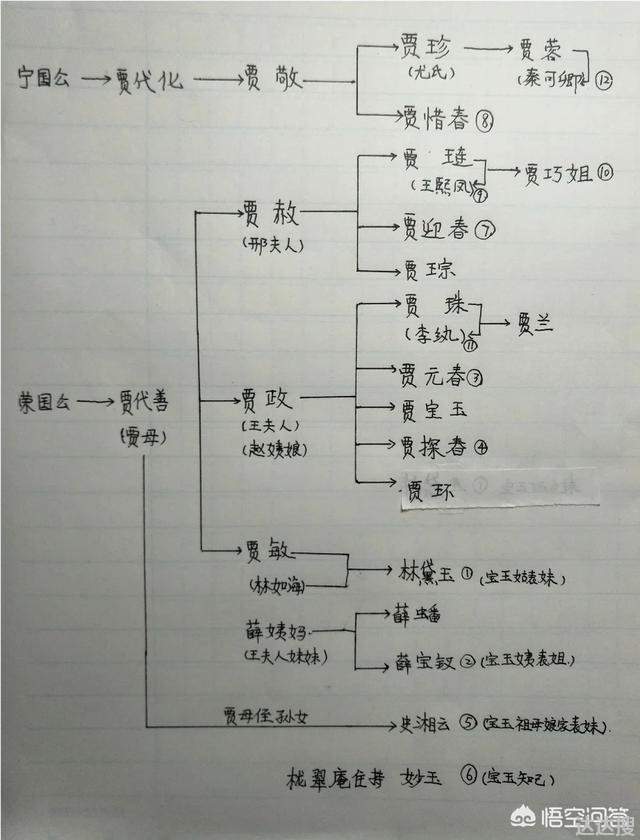 贾珍 贾蓉
宁国公 贾代化 贾敬 (尤氏) (秦可卿) ⑫
贾惜春 ⑧
贾琏
(王熙凤) ⑨ 贾巧姐 ⑩
贾赦
(邢夫人) 贾迎春 ⑦
贾琮
贾珠
(李纨) ⑪ 贾兰
贾元春 ③
荣国公 贾代善 贾政 贾宝玉
(贾母) (王夫人)
(赵姨娘) 贾探春 ④
贾环
贾敏
(林如海) 林黛玉 ① (宝玉姑表妹)
薛蟠
薛姨妈
(王夫人妹妹) 薛宝钗 ② (宝玉姨表姐)
贾母侄孙女 史湘云 ⑤ (宝玉祖母娘家表妹)
栊翠庵住持 妙玉 ⑥ (宝玉知己)
悟空问答
达达搜